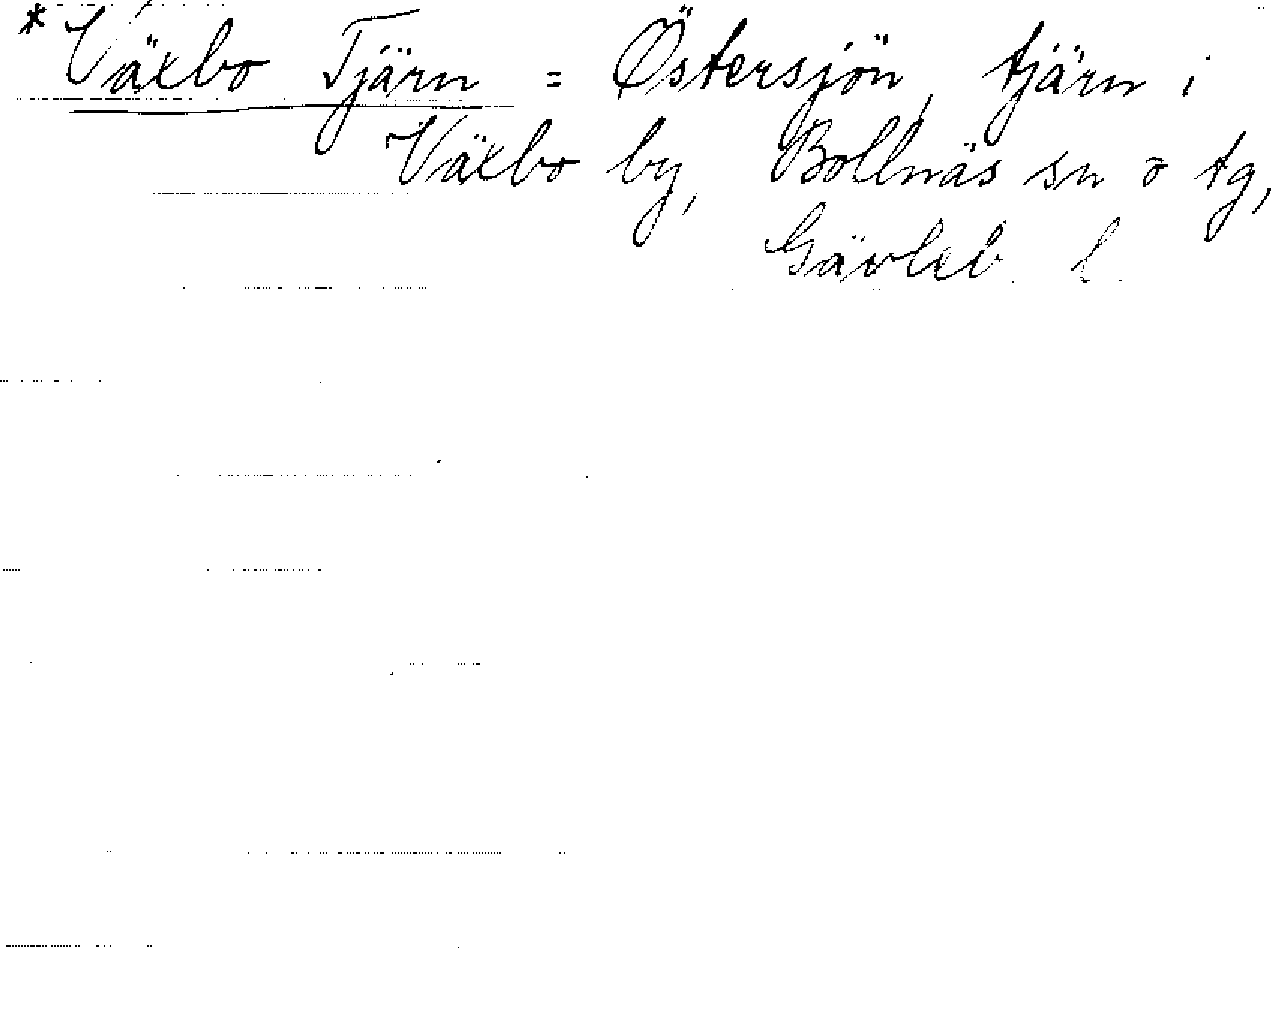 * Växbo Tjärn = Östersjön, tjärn i
Växbo by, Bollnäs sn o tg,
Gävleb. l.